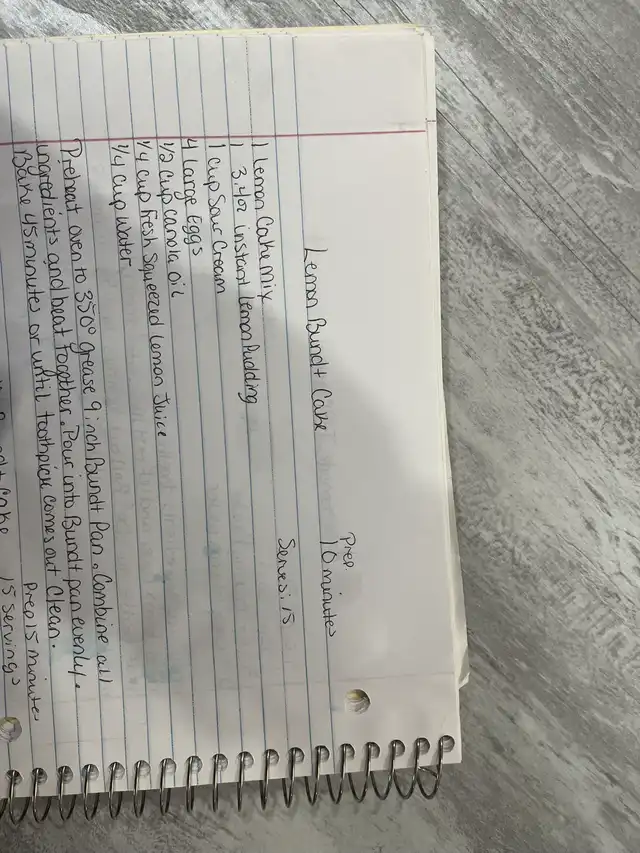 Prep
Lemon Bundt Cake 10 minutes
Serves: 15
1 Lemon Cake Mix
1 3.4oz instant lemon Pudding
1 cup Sour Cream
4 large Eggs
1/2 cup Canola Oil
1/4 cup Fresh Squeezed Lemon Juice
1/4 cup Water
Preheat oven to 350° grease 9 inch Bundt Pan. Combine all
ingredients and beat together. Pour into Bundt pan evenly.
Bake 45 minutes or until toothpick comes out Clean.
Prep 15 minutes
Cake 15 Servings